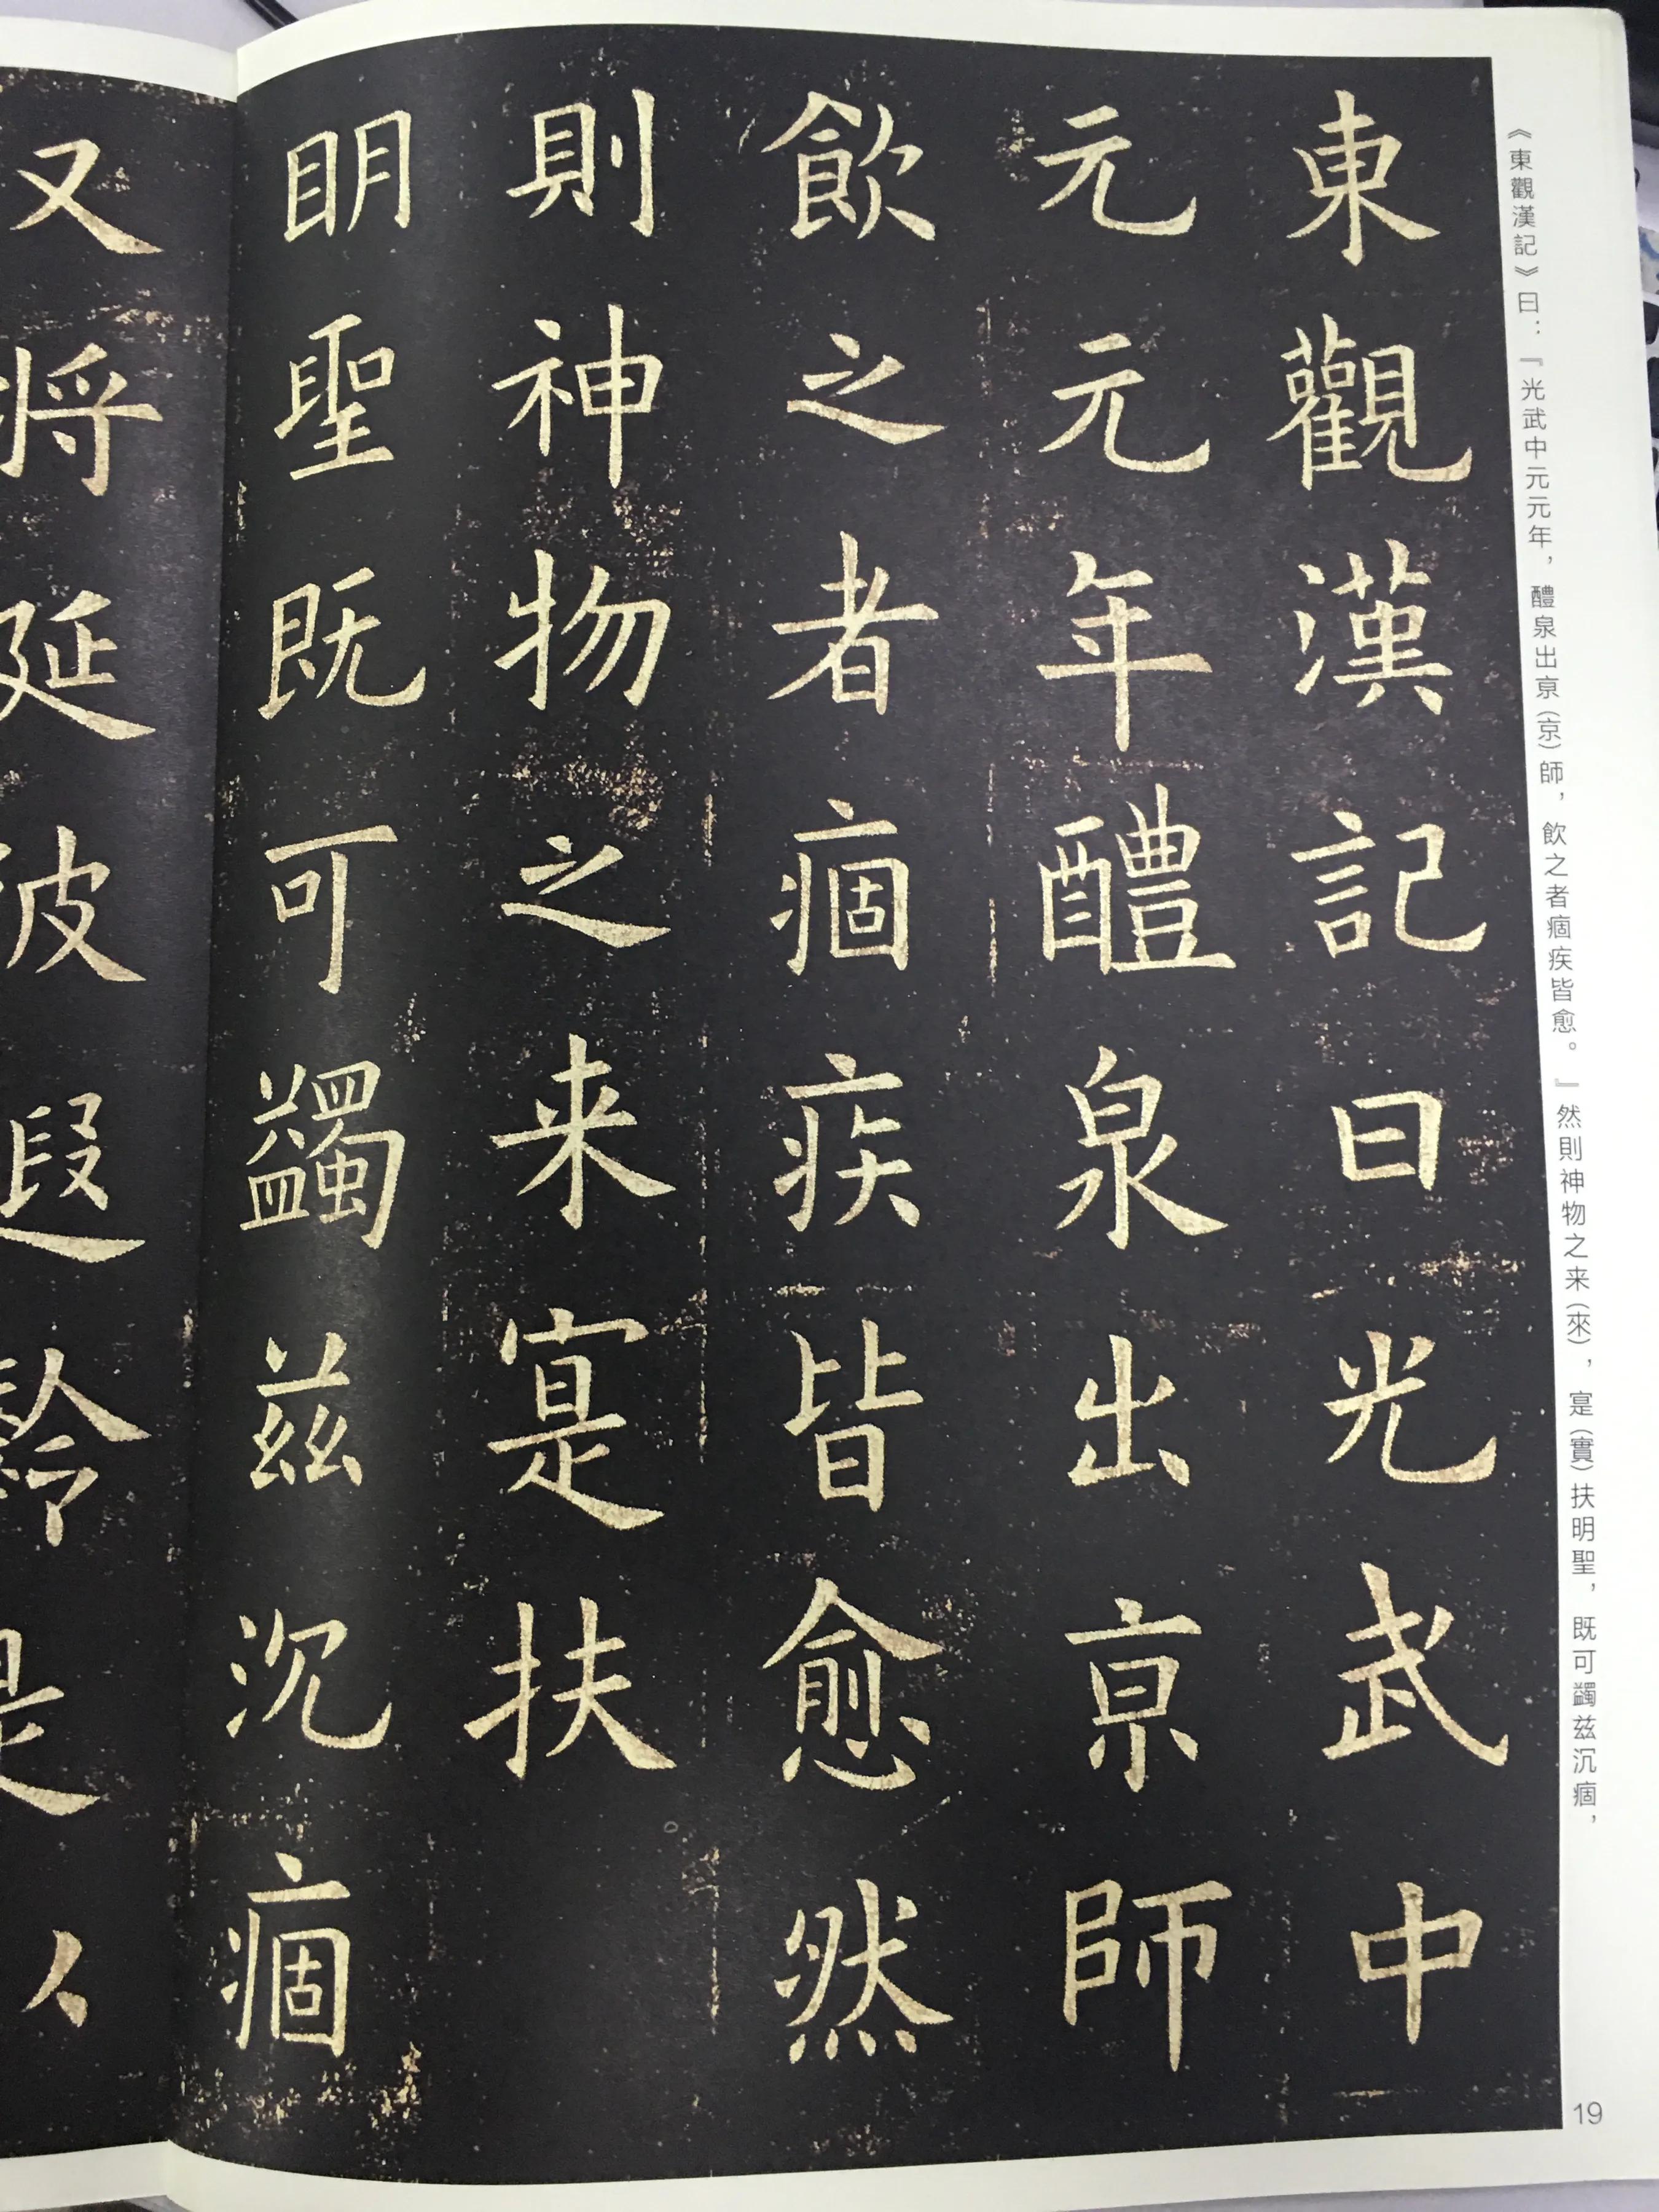 《東觀漢記》曰：『光武中元元年，醴泉出亰(京)師，飲之者痼疾皆愈。』然則神物之来(來)，寔(實)扶明聖，既可蠲兹沉痼，
東觀漢記曰光武中
元元年醴泉出亰師
飲之者痼疾皆愈然
則神物之来寔扶
明聖既可蠲兹沉痼
又将延彼遐齡是
19